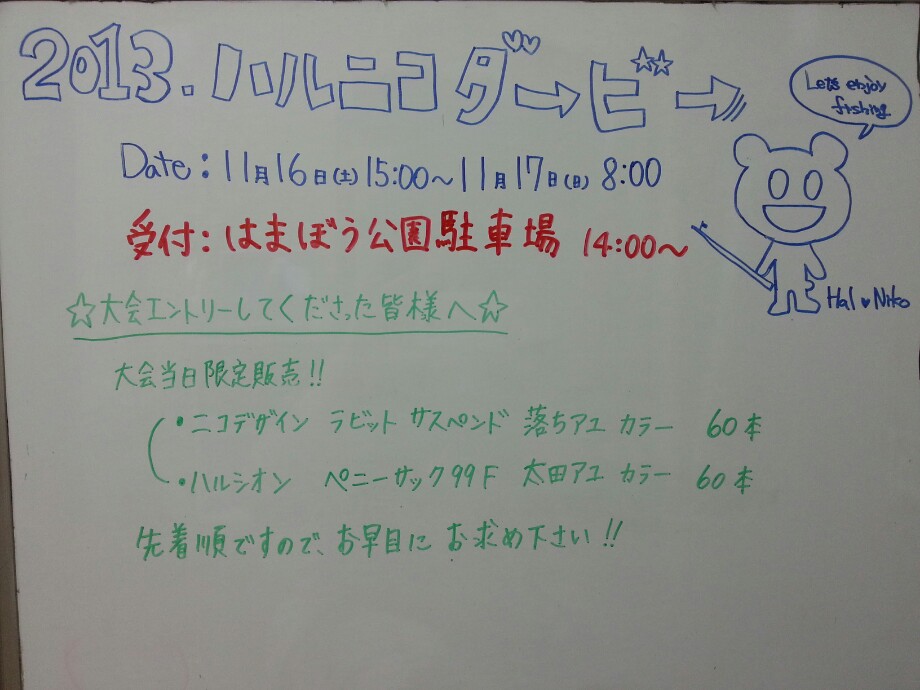 2013.ハルニコダービー
Let's enjoy
fishing
Date：11月16日(土)15:00〜11月17日(日) 8:00
受付：はまぼう公園駐車場 14:00〜
Hal♥Niko
☆大会エントリーしてくださった皆様へ☆
大会当日限定販売!!
・ニコデザイン ラビット サスペンド 落ちアユ カラー 60本
・ハルシオン ペニーサック99F 太田アユ カラー 60本
先着順ですので、お早目に お求め下さい!!